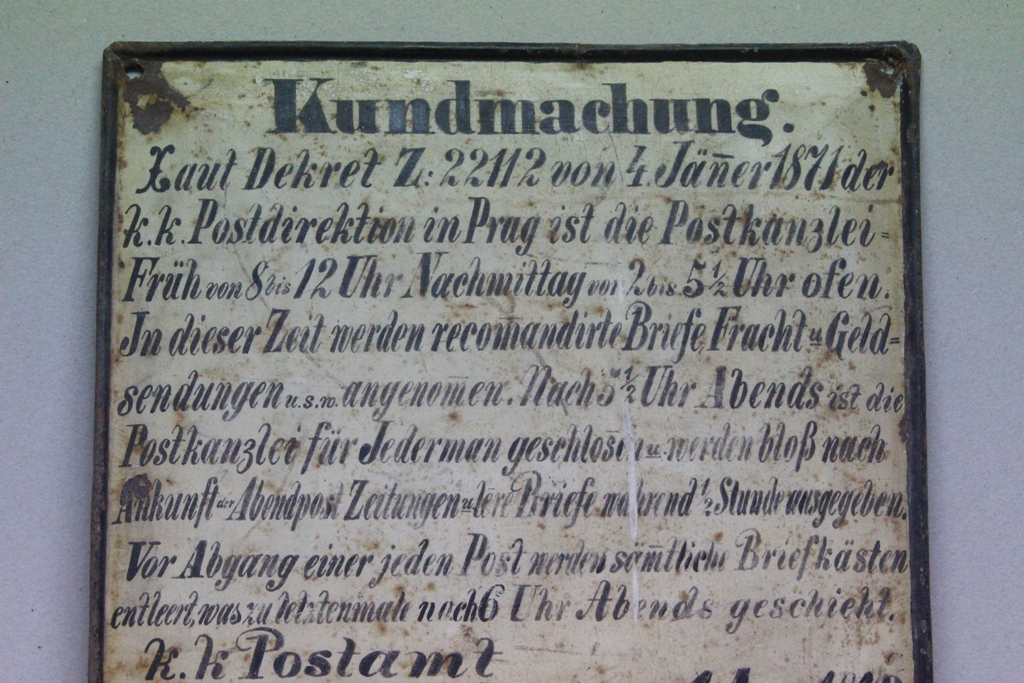 Kundmachung.
Laut Dekret Z: 22112 von 4. Jän̄er 1871 der
k. k. Postdirektion in Prag ist die Postkanzlei-
Früh von 8 bis 12 Uhr Nachmittag von 2 bis 5 ½ Uhr ofen.
In dieser Zeit werden recom̄andirte Briefe Fracht u Geld=
sendungen u. s. w. angenom̄en. Nach 5 ½ Uhr Abends ist die
Postkanzlei für Jederman geschloßen u. werden bloß nach
Ankunft der Abendpost Zeitungen u. lere Briefe während ½ Stunde ausgegeben.
Vor Abgang einer jeden Post werden sam̄tliche Briefkästen
entleert, was zu letztenmale nach 6 Uhr Abends geschieht.
k. k Postamt